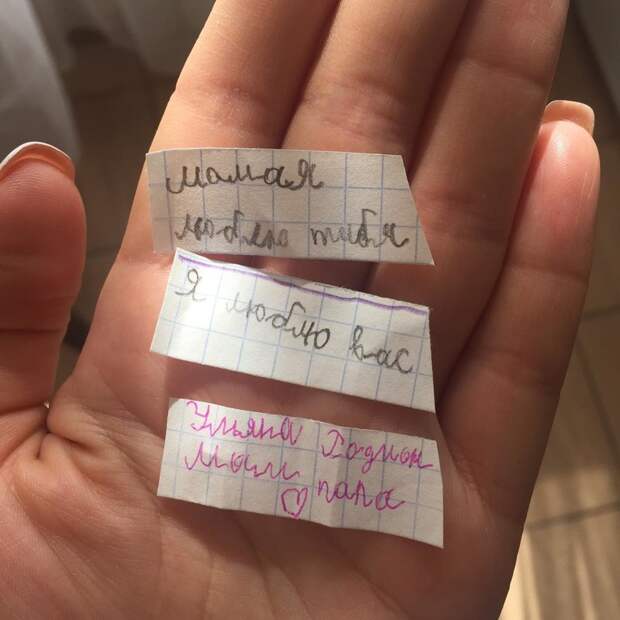 мамаЯ
люблю тибя
Я люблю вас
Ульяна Родион
Мами ♡ папа